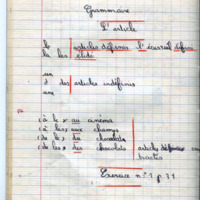 Grammaire
L'article
le articles définis l'écureuil défini
la les élidé
un
des articles indéfinis
une
(à le) au cinéma
(à les) aux champs
(de le) du chocolat
(de les) des chocolats articles définis con
tractés
Exercice n° 1 p 31